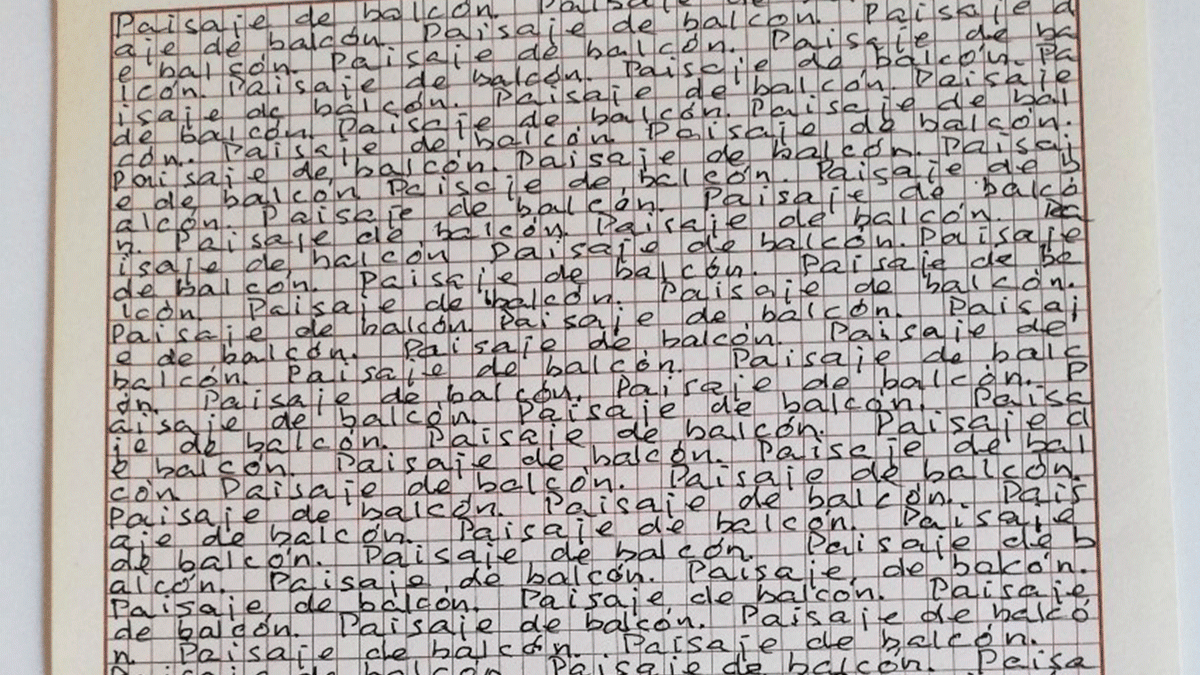 Paisaje de balcón. Paisaje de
aje de balcón. Paisaje de balcón. Paisaje d
e balcón. Paisaje de balcón. Paisaje de ba
lcón. Paisaje de balcón. Paisaje de balcón. Pa
isaje de balcón. Paisaje de balcón. Paisaje
de balcón. Paisaje de balcón. Paisaje de bal
cón. Paisaje de balcón. Paisaje de balcón.
Paisaje de balcón. Paisaje de balcón. Paisaj
e de balcón. Paisaje de balcón. Paisaje de b
alcón. Paisaje de balcón. Paisaje de balcó
n. Paisaje de balcón. Paisaje de balcón. Pa
isaje de balcón. Paisaje de balcón. Paisaje
de balcón. Paisaje de balcón. Paisaje de ba
lcón. Paisaje de balcón. Paisaje de balcón.
Paisaje de balcón. Paisaje de balcón. Paisaj
e de balcón. Paisaje de balcón. Paisaje de
balcón. Paisaje de balcón. Paisaje de balc
ón. Paisaje de balcón. Paisaje de balcón. P
aisaje de balcón. Paisaje de balcón. Paisa
je de balcón. Paisaje de balcón. Paisaje d
e balcón. Paisaje de balcón. Paisaje de bal
cón Paisaje de balcón. Paisaje de balcón.
Paisaje de balcón. Paisaje de balcón. Pais
aje de balcón. Paisaje de balcón. Paisaje
de balcón. Paisaje de balcón. Paisaje de b
alcón. Paisaje de balcón. Paisaje de balcón.
Paisaje de balcón. Paisaje de balcón. Paisaje
de balcón. Paisaje de balcón. Paisaje de balcó
n. Paisaje de balcón. Paisaje de balcón.
Paisaje de balcón Paisaje de balcón. Paisa